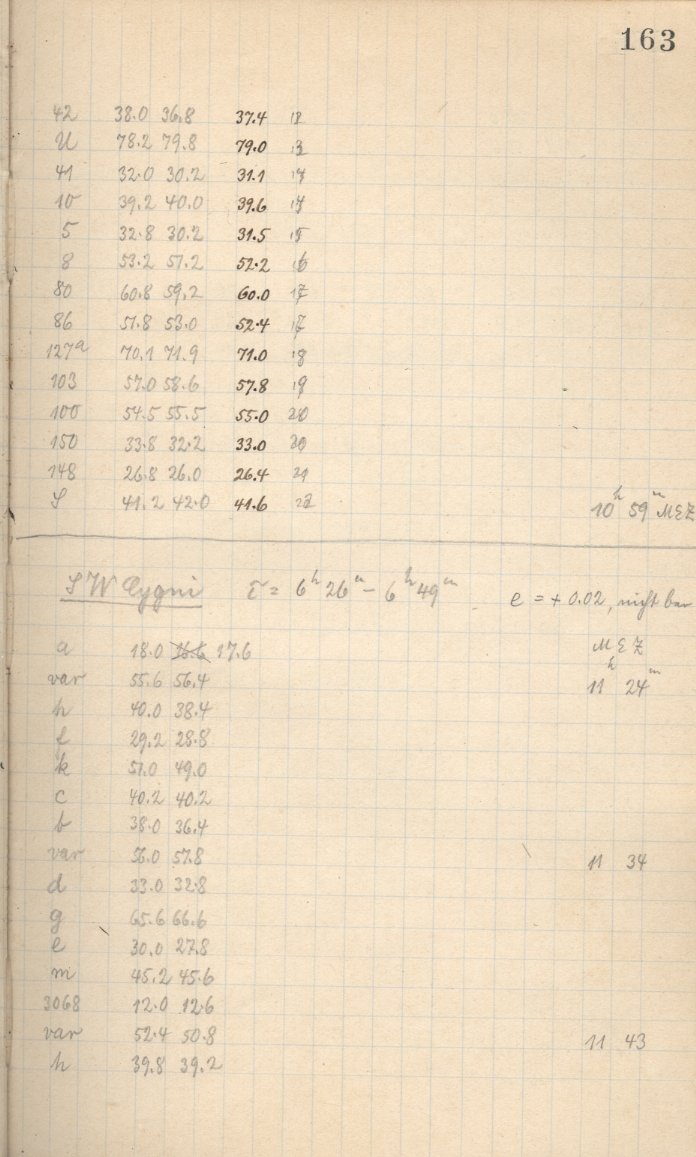 163
42 38.0 36.8 37.4
U 78.2 79.8 79.0
41 32.0 30.2 31.1
10 39.2 40.0 39.6
5 32.8 30.2 31.5
8 53.2 51.2 52.2
80 60.8 59.2 60.0
86 51.8 53.0 52.4
127a 70.1 71.9 71.0 18
103 57.0 58.6 57.8 19
100 54.5 55.5 55.0 20
150 33.8 32.2 33.0 20
148 26.8 26.0 26.4 21
S 41.2 42.0 41.6 22 10h 59m MEZ
SW Cygni τ = 6h 26m – 6h 49m e = + 0.02, nicht bar
a 18.0 16.6 17.6 MEZ
var 55.6 56.4 11h 24m
h 40.0 38.4
f 29.2 28.8
k 51.0 49.0
c 40.2 40.2
b 38.0 36.4
var 56.0 57.8 11 34
d 33.0 32.8
g 65.6 66.6
e 30.0 27.8
m 45.2 45.6
3068 12.0 12.6
var 52.4 50.8 11 43
h 39.8 39.2